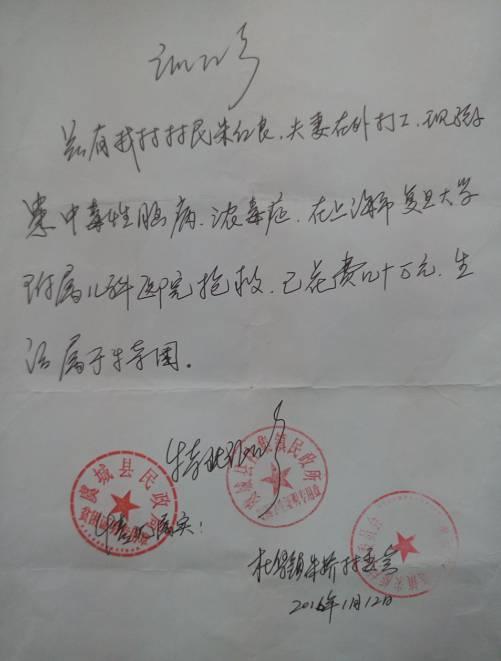 证明
兹有我村村民朱红良，夫妻在外打工，现孩子
患中毒性肠病、浓毒症，在上海市复旦大学
附属儿科医院抢救，已花费几十万元，生
活属于特困。
特此证明
虞城县民政局
民政所
情况属实！
村委会
2016年1月12日